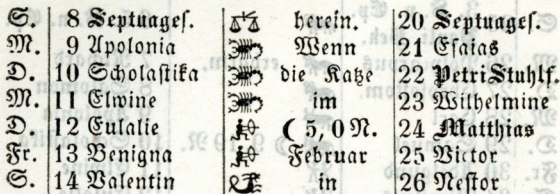 S. 8 Septuages. herein. 20 Septuages.
M. 9 Apolonia Wenn 21 Esaias
D. 10 Scholastika die Katze 22 Petri Stuhlf.
M. 11 Elwine im 23 Wilhelmine
D. 12 Eulalie ☾ 5,0 N. 24 Matthias
Fr. 13 Benigna Februar 25 Victor
S. 14 Valentin in 26 Nestor